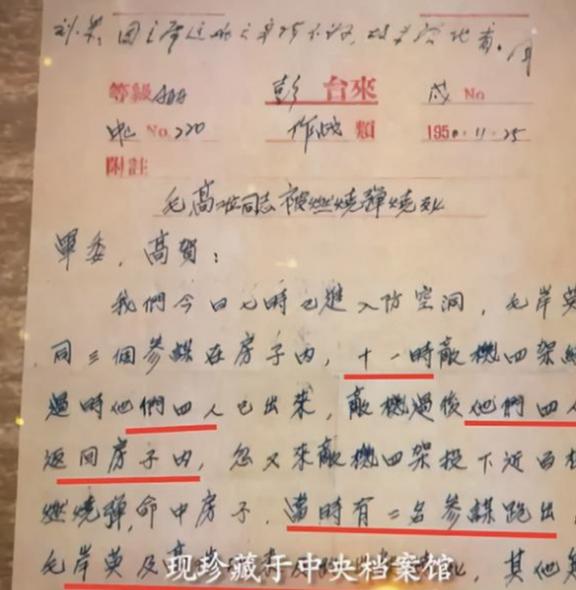 刘、 因主席这
等級 彭 台來 戌 No
No.220 作战 類 1950·11·25
附註
毛高二位同志被燃燒彈燒死
軍委，高賀：
我們今日七時已進入防空洞，毛岸英
同三個參謀在房子内，十一時敵機四架
過時他們四人已出來，敵機過後他們四人
返回房子内，忽又來敵機四架投下近百
燃燒彈，命中房子，當時有二名參謀跑出
毛岸英及高 未及 其他
现珍藏于中央档案馆